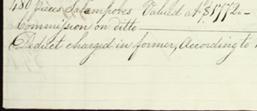 480 pieces Salampores Valued at $1772.-
Commission on ditto
Deduct charged in former, According to